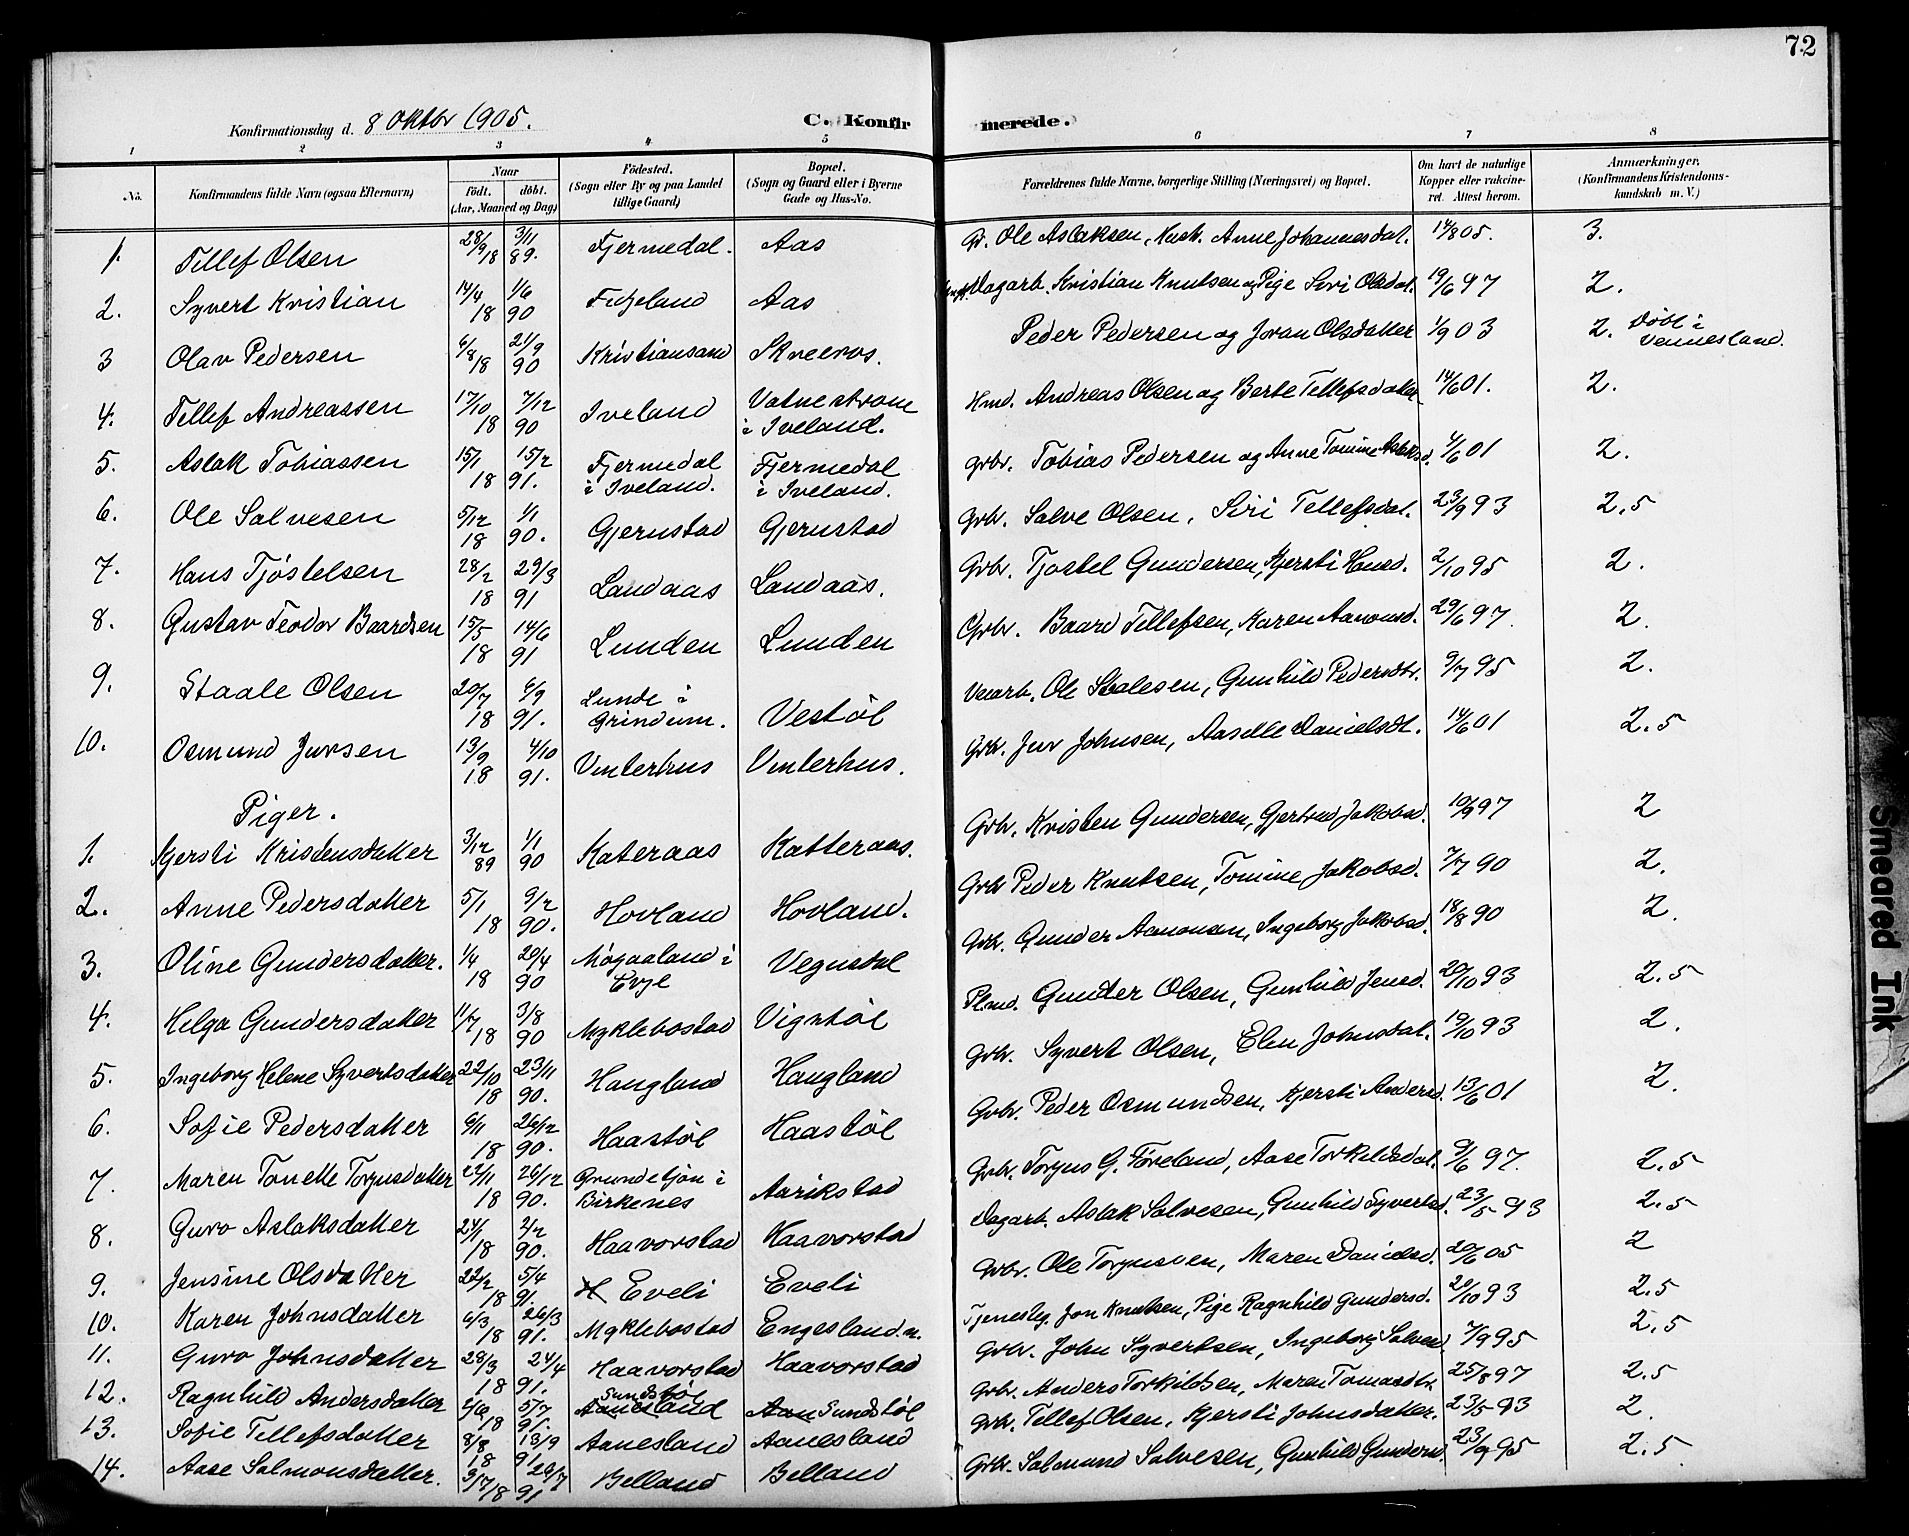 72
Konfirmationsdag d. 8 Oktbr 1905.
C. Konfirmerede.
1 2 3 4 5 6 7 8
No. Konfirmandens fulde Navn (ogsaa Efternavn) Naar født. døbt. (Aar, Maaned og Dag) Fødested. (Sogn eller By og paa Landet tillige Gaard) Bopæl. (Sogn og Gaard eller i Byerne Gade og Hus-No. Forældrenes fulde Navne, borgerlige Stilling (Næringsvei) og Bopæl. Om havt de naturlige Kopper eller vakcineret. Attest herom. Anmærkninger, (Konfirmandens Kristendomskundskab m. V.)
1. Tellef Olsen 28/9 18 3/11 89. Fjermedal. Aas Gr. Ole Aslaksen, Anne Johannesdat. 14/8 05. 3.
2. Syvert Kristian 14/4 18 1/6 90 Fidjeland Aas Dagarb. Kristian Knutsen og Pige Siri Olsdat. 19/6 97 2.
3 Olav Pedersen 6/8 18 21/9 90 Kristiansand Skreeros. Peder Pedersen og Joran Olsdatter 1/9 03 2. Døbt i Vennesland.
4. Tellef Andreassen 17/10 18 7/12 90 Iveland Vatnestrøm i Iveland. Hmd. Andreas Olsen og Berte Tellefsdatter 14/6 01. 2.
5. Aslak Tobiassen 15/1 18 15/2 91. Fjermedal i Iveland. Fjermedal i Iveland. Grbr. Tobias Pedersen og Anne Tomine Aslaksd. 4/6 01 2.
6. Ole Salvesen 5/12 18 1/1 90. Gjernstad Gjernstad Grbr. Salve Olsen, Siri Tellefsdat. 23/9 93 2.5
7. Hans Tjøstelsen 28/2 18 29/3 91 Landaas Landaas. Grbr. Tjøstel Gundersen, Kjersti Hansd. 2/10 95 2.
8. Gustav Teodor Baardsen 15/5 18 14/6 91 Lunden Lunden Grbr. Baard Tellefsen, Karen Aanonsd. 29/6 97. 2.
9. Staale Olsen 20/7 18 6/9 91. Lunde i Grindum. Vestøl Veiarb. Ole Stalesen, Gunhild Pedersdtr. 9/7 95 2.
10. Osmund Jursen 13/9 18 4/10 91. Vinterhus Vinterhus. Grbr. Jur Johnsen, Aaselle Danielsdt. 14/6 01 2.5
Piger.
1. Kjersti Kristensdatter 3/12 89 1/1 90 Kateraas Katteraas. Grbr. Kristen Gundersen, Gjertrud Jakobsd. 10/9 97 2
2. Anne Pedersdatter 5/1 18 9/2 90. Hovland Hovland. Grbr Peder Knutsen, Tomine Jakobsd. 7/7 90 2.
3. Oline Gundersdatter. 1/4 18 20/4 90 Møgaaland i Evje Vegustøl Grbr. Gunder Aanonsen, Ingeborg Jakobsd. 18/8 90 2.
4. Helga Gundersdatter 11/7 18 3/8 90 Myklebostad Vigstøl Plmd. Gunder Olsen, Gunhild Jensd. 20/10 93 2.5
5. Ingeborg Helene Syvertsdatter 22/10 18 23/11 90. Haugland Haugland Grbr. Syvert Olsen, Elen Johnsdat. 19/10 93 2.
6. Sofie Pedersdatter 9/11 18 26/12 90. Haastøl Haastøl Grbr. Peder Osmundsen, Kjersti Andersd. 13/6 01 2.
7. Maren Tonette Torjusdatter 22/11 18 26/12 90. Grundetjøn i Birkenes Aarikstad Grbr. Torjus G. Føreland, Aase Torkildsdat. 9/6 97. 2.5
8. Guro Aslaksdatter 24/1 18 2/2 90. Haavorstad Haavorstad Dagarb. Aslak Salvesen, Gunhild Syvertsd. 23/5 93 2.5
9. Jensine Olsdatter 22/2 18 5/4 91. Eveli Eveli Grbr. Ole Torjussen, Maren Danielsd. 20/6 05 2
10. Karen Johnsdatter 6/3 18 26/3 91. Myklebostad Engesland. Tjenesteg. Jon Knutsen, Pige Ragnhild Gundersd. 20/10 93 2.5
11. Guro Johnsdatter 28/3 18 24/4 91. Haavorstad Haavorstad Grbr. John Syvertsen, Ingeborg Salvesd. 7/9 95 2.5
12. Ragnhild Andersdatter 2/6 18 5/7 91. Sundstøl Aanesland Aan Sundstøl Grbr. Anders Torkildsen, Maren Tomasdtr. 25/8 97 2.5
13. Sofie Tellefsdatter 8/8 18 13/9 91 Aanesland Aanesland Grbr. Tellef Olsen, Kjersti Johnsdatter. 23/5 93 2.
14. Aase Salmonsdatter. 9/7 18 26/7 91 Belland Belland Grbr. Salmund Salvesen, Gunhild Gundersd. 23/9 95 2.5
Smeared Ink